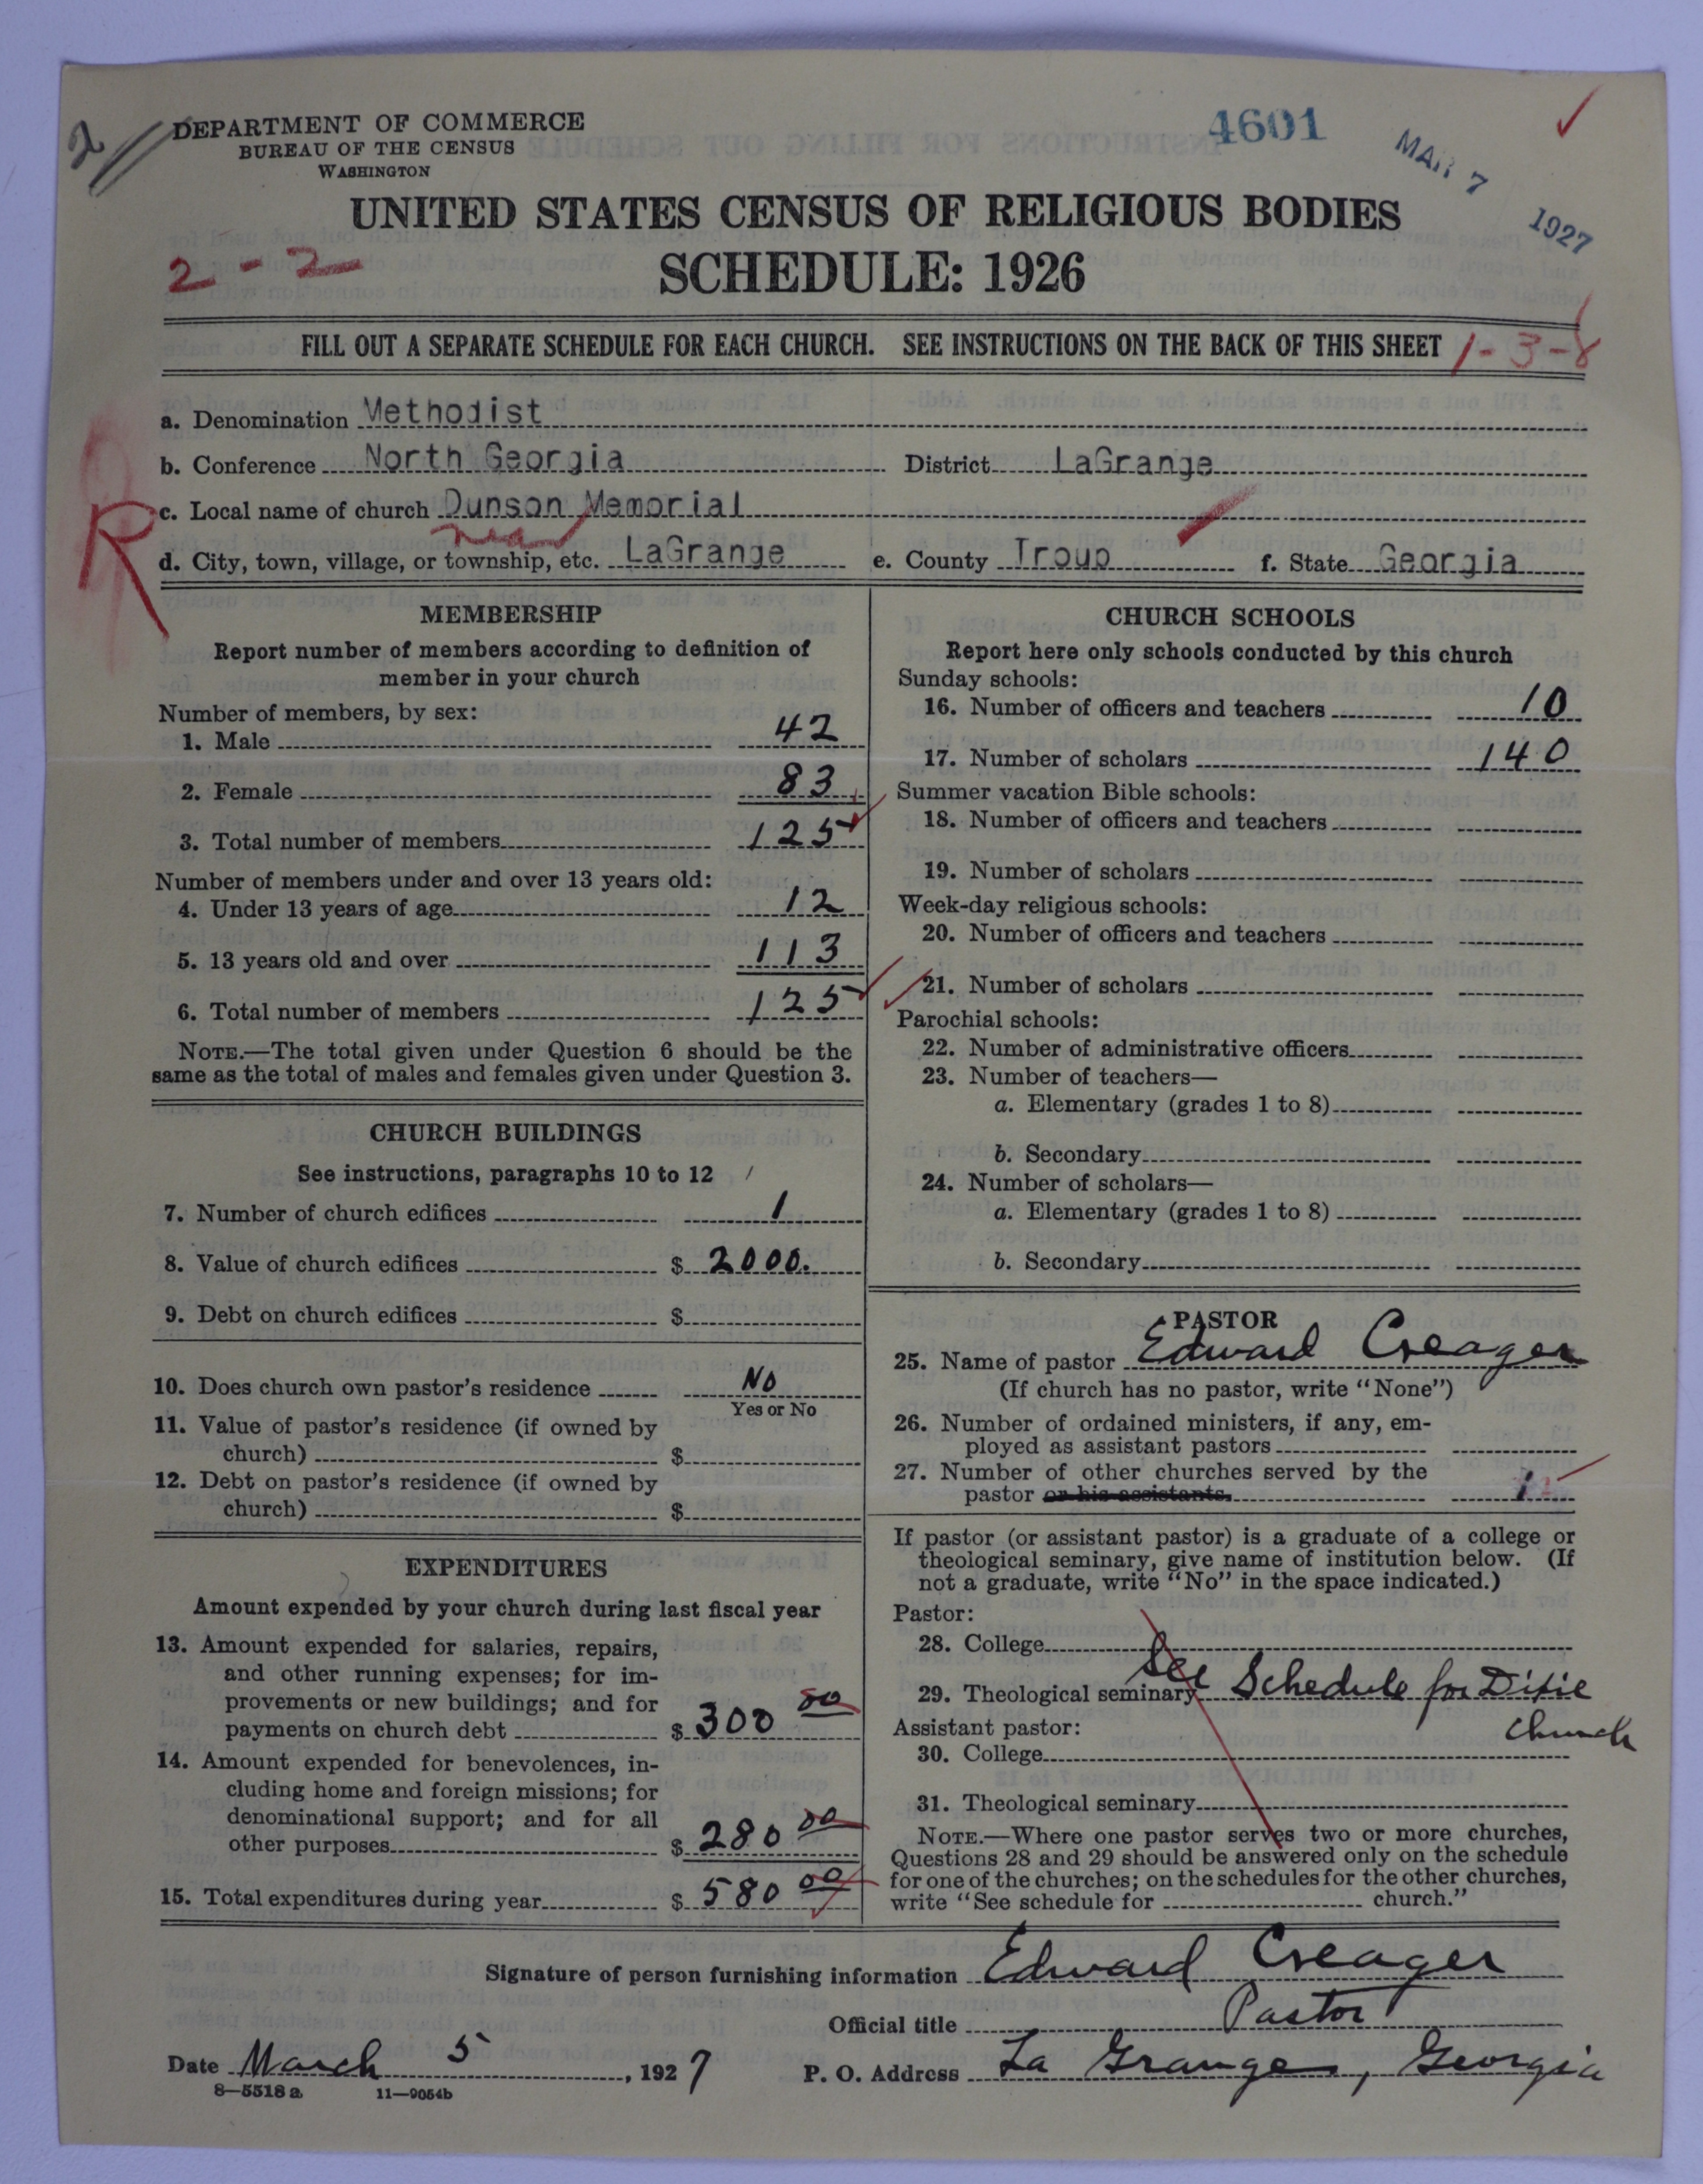 2
DEPARTMENT OF COMMERCE
BUREAU OF THE CENSUS
WASHINGTON
4601
MAR 7 1927
UNITED STATES CENSUS OF RELIGIOUS BODIES
2-2
SCHEDULE: 1926
FILL OUT A SEPARATE SCHEDULE FOR EACH CHURCH. SEE INSTRUCTIONS ON THE BACK OF THIS SHEET
1-3-8
a. Denomination Methodist
b. Conference North Georgia District LaGrange
R
c. Local name of church Dunson Memorial
near
d. City, town, village, or township, etc. LaGrange e. County Troup f. State Georgia
MEMBERSHIP
Report number of members according to definition of
member in your church
Number of members, by sex:
1. Male 42
2. Female 83
3. Total number of members 125
Number of members under and over 13 years old:
4. Under 13 years of age 12
5. 13 years old and over 113
6. Total number of members 125
NOTE.—The total given under Question 6 should be the
same as the total of males and females given under Question 3.
CHURCH BUILDINGS
See instructions, paragraphs 10 to 12
7. Number of church edifices 1
8. Value of church edifices $ 2000.
9. Debt on church edifices $
10. Does church own pastor's residence No
Yes or No
11. Value of pastor's residence (if owned by
church) $
12. Debt on pastor's residence (if owned by
church) $
EXPENDITURES
Amount expended by your church during last fiscal year
13. Amount expended for salaries, repairs,
and other running expenses; for im-
provements or new buildings; and for
payments on church debt $ 300 00
14. Amount expended for benevolences, in-
cluding home and foreign missions; for
denominational support; and for all
other purposes $ 280 00
15. Total expenditures during year $ 580 00
CHURCH SCHOOLS
Report here only schools conducted by this church
Sunday schools:
16. Number of officers and teachers 10
17. Number of scholars 140
Summer vacation Bible schools:
18. Number of officers and teachers
19. Number of scholars
Week-day religious schools:
20. Number of officers and teachers
21. Number of scholars
Parochial schools:
22. Number of administrative officers
23. Number of teachers—
a. Elementary (grades 1 to 8)
b. Secondary
24. Number of scholars—
a. Elementary (grades 1 to 8)
b. Secondary
PASTOR
25. Name of pastor Edward Creager
(If church has no pastor, write "None")
26. Number of ordained ministers, if any, em-
ployed as assistant pastors
27. Number of other churches served by the
pastor or his assistants. 1
If pastor (or assistant pastor) is a graduate of a college or
theological seminary, give name of institution below. (If
not a graduate, write "No" in the space indicated.)
Pastor:
28. College
29. Theological seminary See Schedule for Dixie
church
Assistant pastor:
30. College
31. Theological seminary
NOTE.—Where one pastor serves two or more churches,
Questions 28 and 29 should be answered only on the schedule
for one of the churches; on the schedules for the other churches,
write "See schedule for church."
Signature of person furnishing information Edward Creager
Official title Pastor
Date March 5, 1927 P. O. Address La Grange, Georgia
8—5518 a 11—9054b